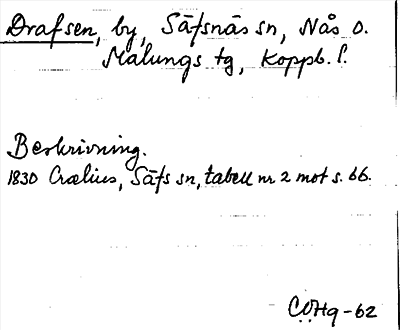 Drafsen, by, Säfsnäs sn, Nås o.
Malungs tg, Koppb. l.
Beskrivning.
1830 Crælius, Säfs sn, tabell nr 2 mot s. 66.
CÖHq-62